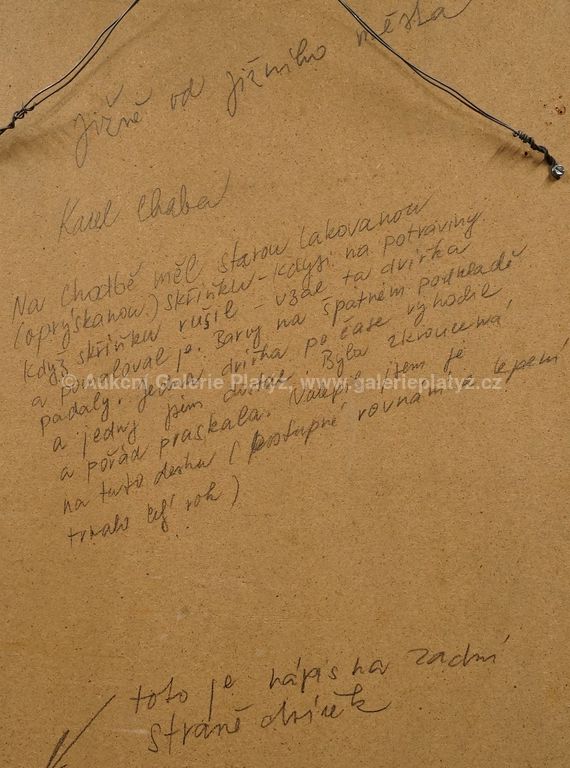 Jižně od jižního města
Karel Chaba
Na chodbě měl starou lakovanou
(oprýskanou) skříňku - kdysi na potraviny.
Když skříňku rušil - vzal ta dvířka
a pomaloval je. Barvy na špatném podkladě
padaly. Jedna dvířka po čase vyhodil
a jedny jsem dostal. Byla zkroucená,
a pořád praskala. Nalepil jsem je
na tuto desku (postupné rovnání a lepení
trvalo celý rok)
© Aukční Galerie Platýz, www.galerieplatyz.cz
toto je nápis na zadní
straně dvířek